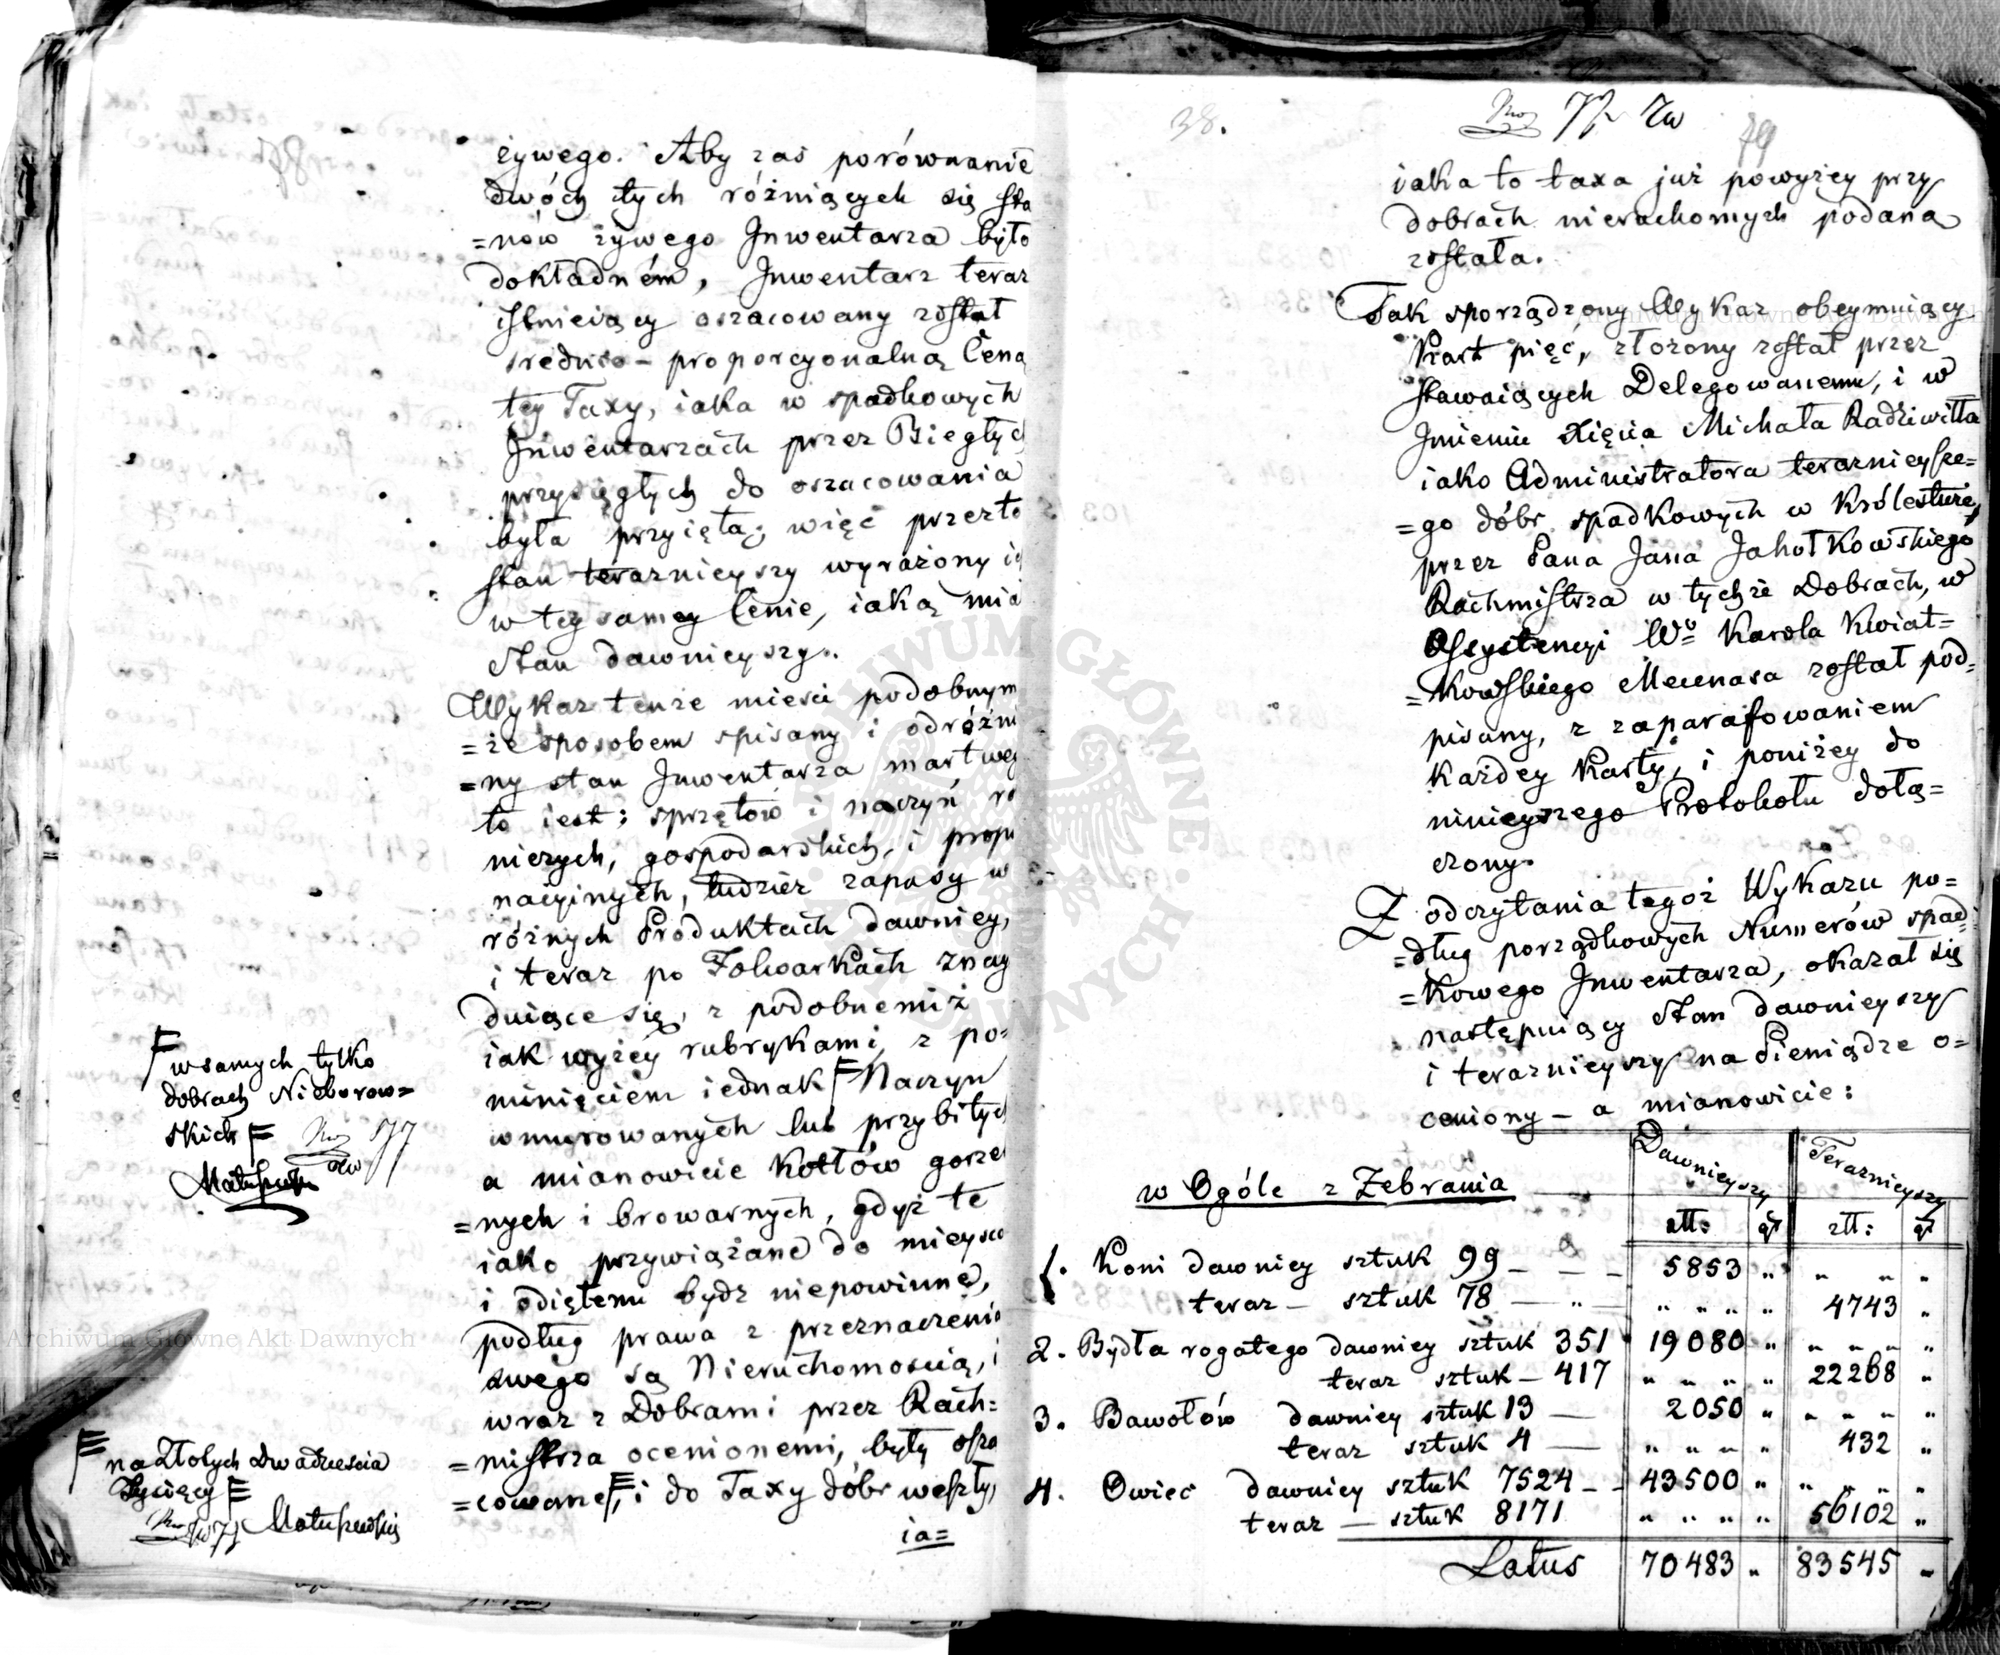 żywego. Aby zaś porównanie
dwóch tych różniących się sta
=nów żywego Inwentarza było
dokładném, Inwentarz teraz
istnieiący oszacowany został
srednio - proporcyonalną Ceną
tey Taxy, iaka w spadkowych
Inwentarzach przez Biegłych
przysięgłych do oszacowania
była przyięta; więc przeto
stan teraznieyszy wyrażony
w tey samey Cenie, iaką mia
Stan dawnieyszy.
Wykaz tenże mieści podobnym
=że sposobem spisany i odróżnio
=ny stan Inwentarza martweg
to iest: sprzętów i naczyń ro
niczych, gospodarskich, i propi
nacyinych, tudzież zapasy w
różnych Produktach dawniey,
i teraz po Folwarkach znay
duiące się, z podobnemiż
iak wyżey rubrykami, z po=
minięciem iednak Naczyn
wmurowanych lub przybitych
a mianowicie Kotłów gorzel
=nych i browarnych, gdyż te
iako przywiązane do mieysca
i odiętemi bydź niepowinne,
podług prawa z przeznaczenia
swego są Nieruchomością, i
wraz z Dobrami przez Rach=
=mistrza ocenionemi, były osza
=cowane, i do Taxy dóbr weszły,
ia=
w samych tylko
dobrach Nieborow=
skich
Matuszewski
na Złotych dwadzieścia
Tysięcy
Matuszewski
38.
79
iaka to taxa już powyżey przy
dobrach nieruchomych podana
została.
Tak sporządzony Wykaz obeymuiący
Kart pięć, złożony został przez
stawaiących Delegowanemu, i w
Imieniu Xięcia Michała Radziwiłła
iako Administratora teraznieysze=
=go dóbr spadkowych w Królestwie,
przez Pana Jana Jahołkowskiego
Rachmistrza w tychże Dobrach, w
Assystencyi Wo Karola Kwiat=
=kowskiego Mecenasa został pod=
pisany, z zaparafowaniem
każdey Karty, i poniżey do
ninieyszego Protokołu dołą=
czony.
Z odczytania tegoż Wykazu po=
=dług porządkowych Numerów spad=
=kowego Inwentarza, okazał się
następuiący Stan dawnieyszy
i teraznieyszy na Pieniądze o=
ceniony - a mianowicie:
w Ogóle z Zebrania Dawnieyszy Teraznieyszy
złł: gr złł: gr
1. Koni dawniey sztuk 99 — — — 5853 „ „ „ „
teraz — sztuk 78 — „ — „ „ „ „ 4743 „
2. Bydła rogatego dawniey sztuk 351 19080 „ „ „ „ „
teraz sztuk — 417 „ „ „ „ 22268 „
3. Bawołów dawniey sztuk 13 — 2050 „ „ „ „ „
teraz sztuk 4 — „ „ „ „ 432 „
4. Owiec dawniey sztuk 7524 — 43500 „ „ „ „ „
teraz — sztuk 8171 „ „ „ „ 56102 „
Latus 70483 „ 83545 „
Archiwum Główne Akt Dawnych
Archiwum Główne Akt Dawnych
ARCHIWUM GŁÓWNE AKT DAWNYCH